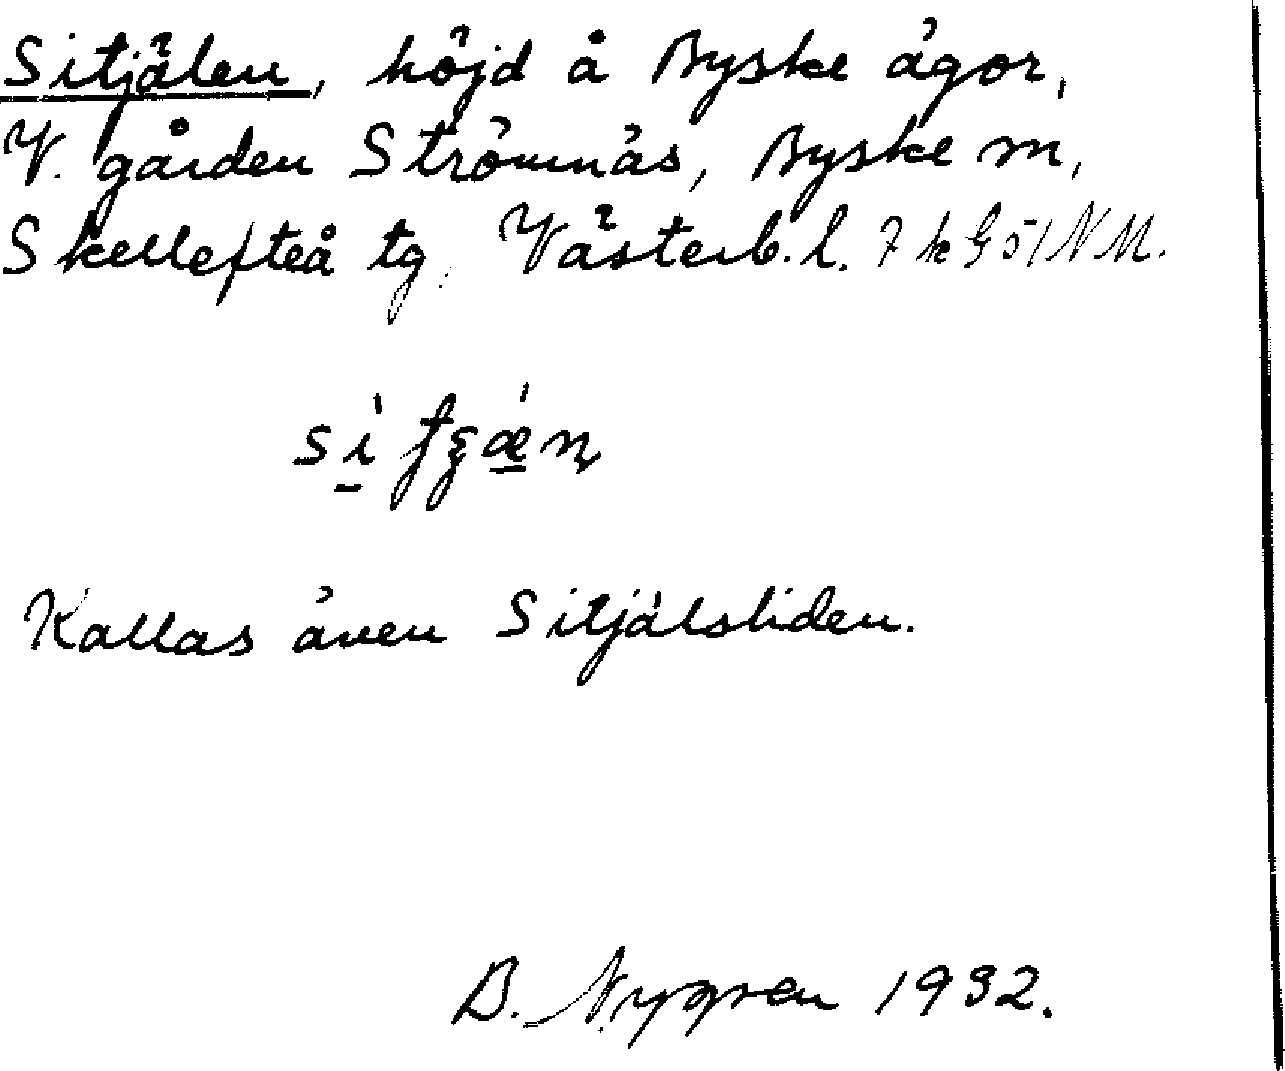 Sitjälen, höjd å Byske ägor,
V. gården Strömnäs, Byske sn,
Skellefteå tg. Västerb. l.
Kallas även Sitjälsliden.
B. Nygren 1932.